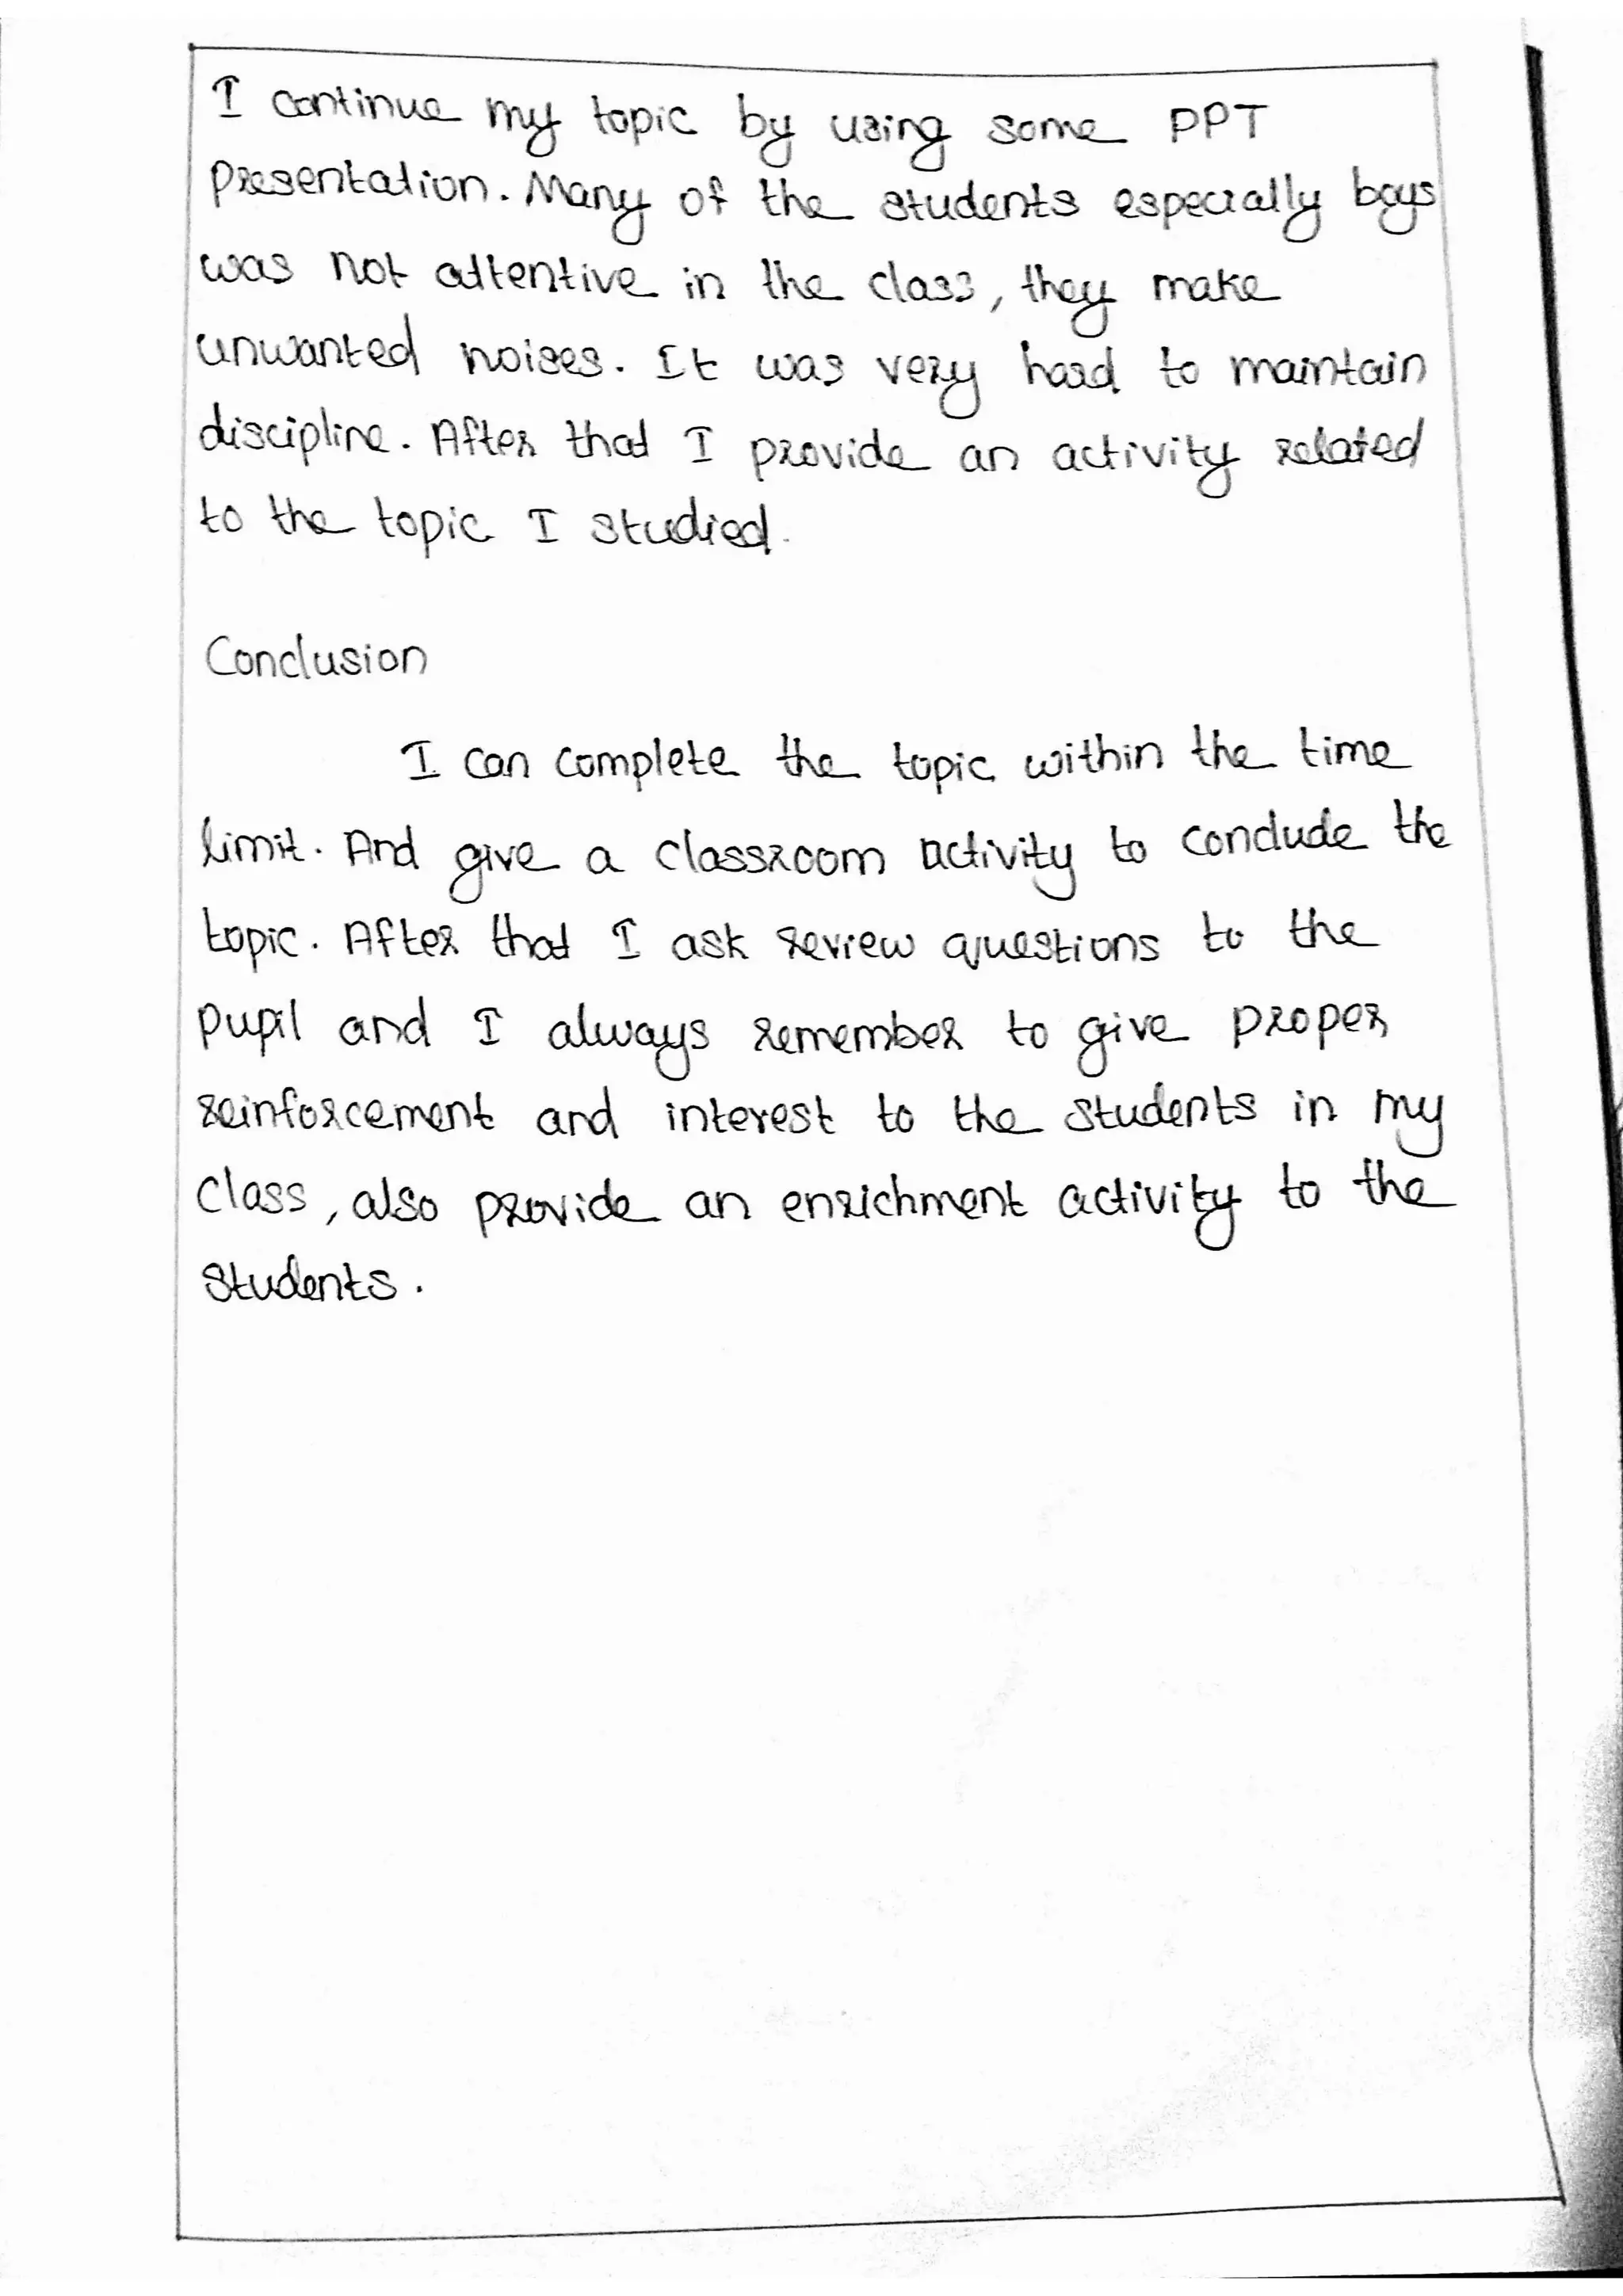 I continue my topic by using some PPT
Presentation. Many of the students especially boys
was not attentive in the class, they make
unwanted noises. It was very hard to maintain
discipline. After that I provide an activity related
to the topic I studied.
Conclusion
I can complete the topic within the time
limit. And give a classroom activity to conclude the
topic. After that I ask review questions to the
pupil and I always remember to give proper
reinforcement and interest to the students in my
class, also provide an enrichment activity to the
students.